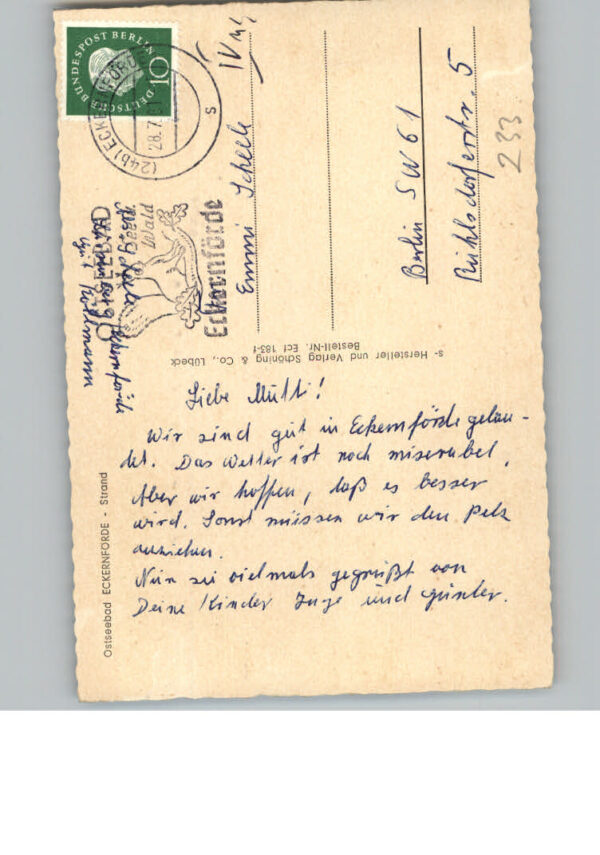 Liebe Mutti!
Wir sind gut in Eckernförde gelan-
det. Das Wetter ist noch miserabel.
Aber wir hoffen, daß es besser
wird. Sonst müssen wir den Pelz
anziehen.
Nun sei vielmals gegrüßt von
Deine Kinder Inge und Günter.
Ostseebad ECKERNFÖRDE - Strand
s- Hersteller und Verlag Schöning & Co., Lübeck
Bestell-Nr. Ecf 183-f
DEUTSCHE BUNDESPOST BERLIN
10
(24b) ECKERNFÖRDE
28.7.
s
OSTSEEBAD
Wald
Eckernförde
Emmi Scheele
Berlin SW 61
5
233